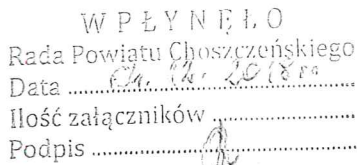 WPŁYNĘŁO
Rada Powiatu Choszczeńskiego
Data 04. 12. 2018 r.
Ilość załączników
Podpis